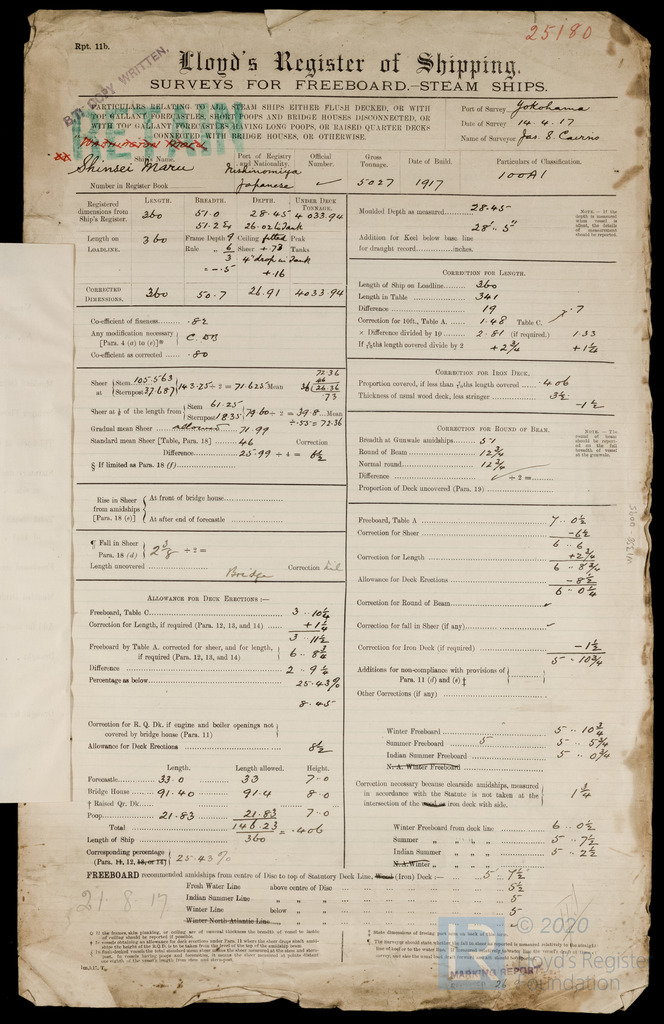 Rpt. 11b.
25180
B.T. COPY WRITTEN.
Lloyd's Register of Shipping.
SURVEYS FOR FREEBOARD.—STEAM SHIPS.
RETAIN
PARTICULARS RELATING TO ALL STEAM SHIPS EITHER FLUSH DECKED, OR WITH
TOP GALLANT FORECASTLES, SHORT POOPS AND BRIDGE HOUSES DISCONNECTED, OR
WITH TOP GALLANT FORECASTLES HAVING LONG POOPS, OR RAISED QUARTER DECKS
CONNECTED WITH BRIDGE HOUSES, OR OTHERWISE.
Port of Survey Yokohama
Date of Survey 14.4.17
Name of Surveyor Jas. S. Cairns
Ship's Name. Port of Registry and Nationality. Official Number. Gross Tonnage. Date of Build. Particulars of Classification.
Shinsei Maru Nishinomiya Japanese 5027 1917 100A1
Number in Register Book
Registered dimensions from Ship's Register. LENGTH. 360 BREADTH. 51.0 DEPTH. 28.45 UNDER DECK TONNAGE. 4033.94
51.2 26.02
Length on LOADLINE. 360 Frame Depth 9 Ceiling fitted Peak
Rule 6 Sheer +.73 Tanks
3 4" drop in Tank
= -.5 +.16
CORRECTED DIMENSIONS. 360 50.7 26.91 4033.94
Moulded Depth as measured 28.45
28'.5"
Addition for Keel below base line for draught record inches.
NOTE.—If the depth is measured when vessel is afloat, the details of measurement should be reported.
CORRECTION FOR LENGTH.
Length of Ship on Loadline 360
Length in Table 341
Difference 19
Correction for 10ft., Table A. 1.48 Table C. .7
× Difference divided by 10 2.81 (if required.) 1.33
If 6/10ths length covered divide by 2 +2¾ +1¼
Co-efficient of fineness .82
Any modification necessary [Para. 4 (a) to (e)]* C.DB
Co-efficient as corrected .80
Sheer at Stem 105.563 Sternpost 37.687 143.25 ÷ 2 = 71.625 Mean
Sheer at ⅛ of the length from Stem 61.25 Sternpost 18.35 79.60 ÷ 2 = 39.8 Mean
÷ .55 = 72.36
72.36
46
26.36
.73
Gradual mean Sheer allowed 71.99
Standard mean Sheer [Table, Para. 18] 46 Correction
Difference 25.99 ÷ 4 = 6½
§ If limited as Para. 18 (f)
CORRECTION FOR IRON DECK.
Proportion covered, if less than 7/10ths length covered .406
Thickness of usual wood deck, less stringer 3½
-1½
CORRECTION FOR ROUND OF BEAM.
Breadth at Gunwale amidships 51
Round of Beam 12¾
Normal round 12¾
Difference ÷ 2 =
Proportion of Deck uncovered (Para. 19)
NOTE.—The round of beam should be reported on the full breadth of vessel at the gunwale.
Rise in Sheer from amidships [Para. 18 (e)] At front of bridge house
At after end of forecastle
¶ Fall in Sheer Para. 18 (d) 2⅜ ÷ 2 =
Length uncovered Bridge Correction Nil
Freeboard, Table A 7 . 0½
Correction for Sheer -6½
6 . 6
Correction for Length +2¾
6 . 8¾
Allowance for Deck Erections -8½
6 . 0¼
Correction for Round of Beam
Correction for fall in Sheer (if any)
Correction for Iron Deck (if required) -1½
5 . 10¾
Additions for non-compliance with provisions of Para. 11 (d) and (e) ‡
Other Corrections (if any)
ALLOWANCE FOR DECK ERECTIONS :—
Freeboard, Table C 3 . 10¼
Correction for Length, if required (Para. 12, 13, and 14) +1¼
3 . 11½
Freeboard by Table A. corrected for sheer, and for length, if required (Para. 12, 13, and 14) 6 . 8¾
Difference 2 . 9¼
Percentage as below 25.43%
8.45
Correction for R. Q. Dk. if engine and boiler openings not covered by bridge house (Para. 11)
Allowance for Deck Erections 8½
Length. Length allowed. Height.
Forecastle 33.0 33 7.0
Bridge House 91.40 91.4 8.0
† Raised Qr. Dk.
Poop 21.83 21.83 7.0
Total 146.23 = .406
Length of Ship 360
Corresponding percentage (Para. 11, 12, 13, or 14) 25.43%
Winter Freeboard 5 . 10¾
Summer Freeboard 5 5 . 5¾
Indian Summer Freeboard 5 . 0¾
N. A. Winter Freeboard
Correction necessary because clearside amidships, measured in accordance with the Statute is not taken at the intersection of the wood or iron deck with side. 1¾
Winter Freeboard from deck line 6 . 0½
Summer " " " " 5 . 7½
Indian Summer " " " 5 . 2½
N.A. Winter " " "
FREEBOARD recommended amidships from centre of Disc to top of Statutory Deck Line, Wood (Iron) Deck :— 5 . 7½
Fresh Water Line above centre of Disc 5½
Indian Summer Line " " 5
Winter Line below " 5
Winter North Atlantic Line " "
21-8-17
MARKING REPORT
LR
© 2020
Lloyd's Register
Foundation